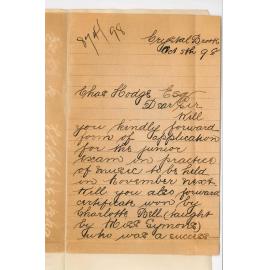 874/98
Crystal Brook
Oct 5th 98
Chas Hodge Esq
Dear Sir
Will
you kindly forward
form of application
for the junior
exam in practice
of music to be held
in November next
Will you also forward
certificate won by
Charlotte Bell (taught
by Miss Symons)
who was a success